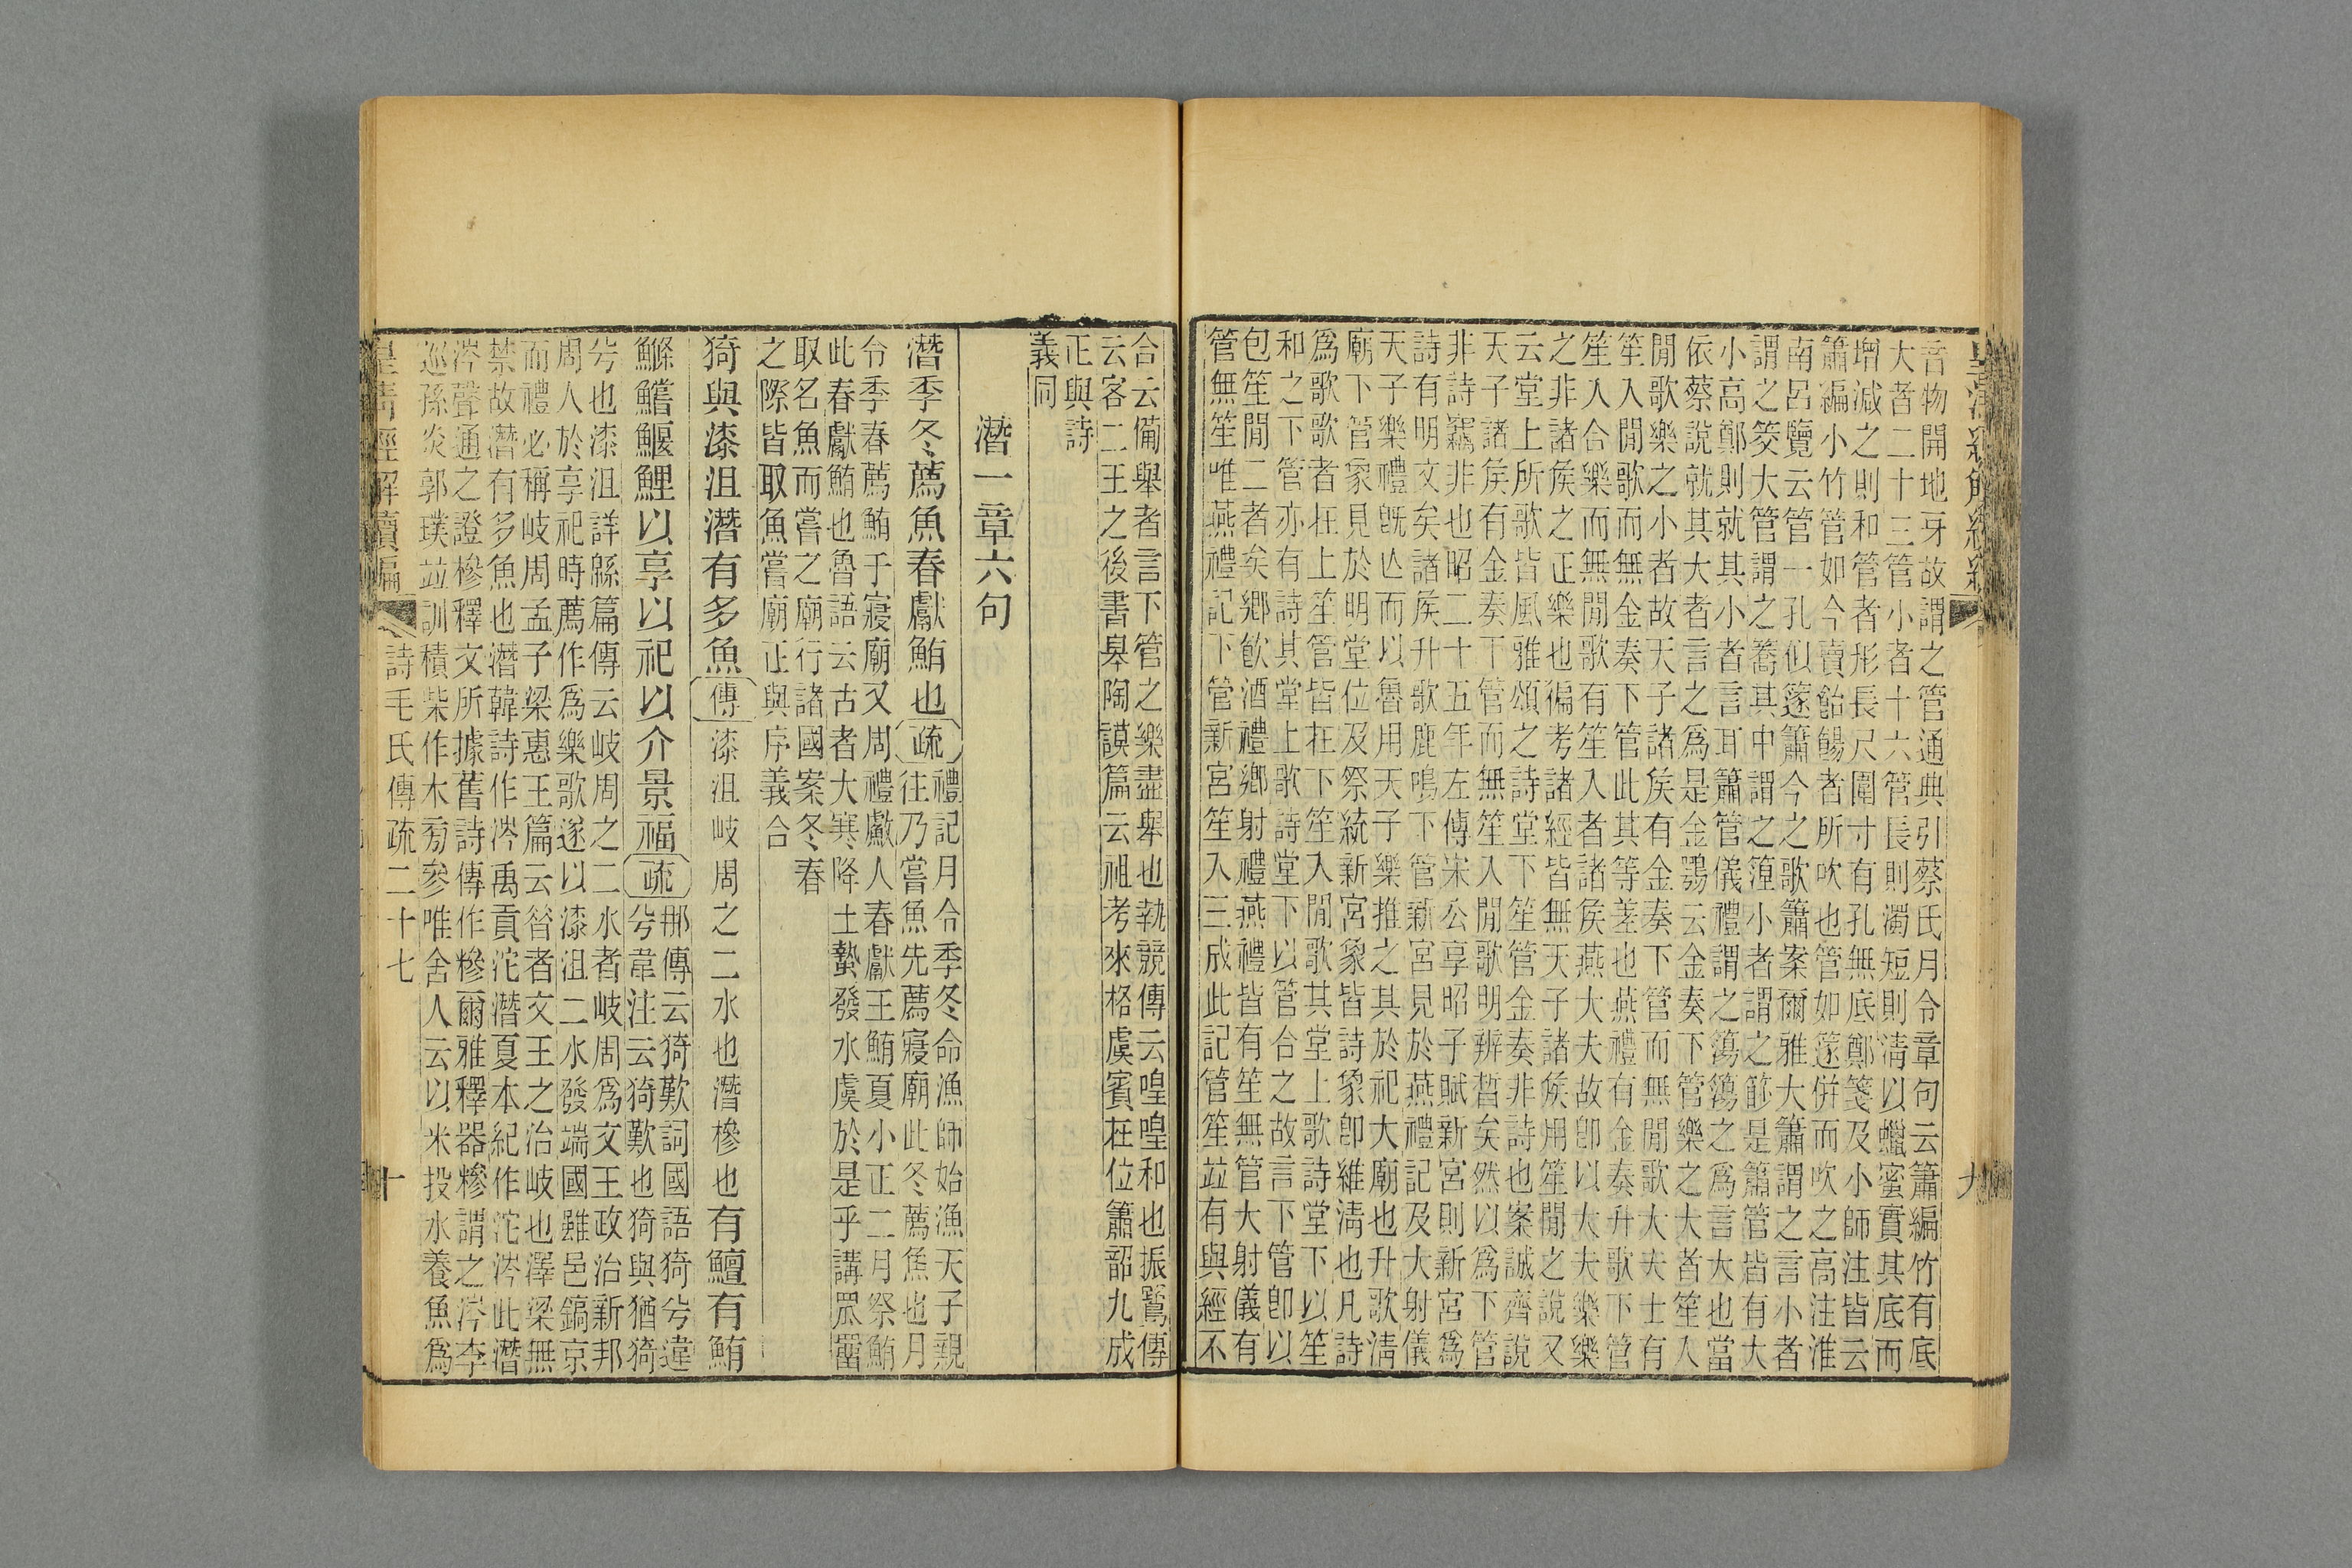 音物開地牙故謂之管通典引蔡氏月令章句云簫編竹有底
大者二十三管小者十六管長則濁短則清以蠟蜜實其底而
增減之則和管者形長尺圍寸有孔無底鄭箋及小師注皆云
簫編小竹管如今賣飴餳者所吹也管如篴併而吹之高注淮
南呂覽云管一孔似篴簫今之歌簫案爾雅大簫謂之言小者
謂之筊大管謂之簥其中謂之篞小者謂之篎是簫管皆有大
小高鄭則就其小者言耳簫管儀禮謂之簜簜之爲言大也當
依蔡說就其大者言之爲是金鶚云金奏下管樂之大者笙入
閒歌樂之小者故天子諸矦有金奏下管而無閒歌大夫士有
笙入閒歌而無金奏下管此其等差也燕禮有金奏升歌下管
笙入合樂而無閒歌有笙入者諸矦燕大夫故卽以大夫樂樂
之非諸矦之正樂也徧考諸經皆無天子諸矦用笙閒之說又
云堂上所歌皆風雅頌之詩堂下笙管金奏非詩也案誠齊說
天子諸矦有金奏下管而無笙入閒歌明辨晳矣然以爲下管
非詩竊非也昭二十五年左傳宋公享昭子賦新宮則新宮爲
詩有明文矣諸矦升歌鹿鳴下管新宮見於燕禮記及大射儀
天子樂禮旣亾而以魯用天子樂推之其於祀大廟也升歌清
廟下管象見於明堂位及祭統新宮象皆詩象卽維清也凡詩
爲歌歌者在上笙管皆在下笙入閒歌其堂上歌詩堂下以笙
和之下管亦有詩其堂上歌詩堂下以管合之故言下管卽以
包笙閒二者矣鄉飮酒禮鄉射禮燕禮皆有笙無管大射儀有
管無笙唯燕禮記下管新宮笙入三成此記管笙竝有與經不
合云備舉者言下管之樂盡舉也執競傳云喤喤和也振鷺傳
云客二王之後書皋陶謨篇云祖考來格虞賓在位簫韶九成
正與詩
義同
潛一章六句
潛季冬薦魚春獻鮪也疏禮記月令季冬命漁師始漁天子親
往乃嘗魚先薦寢廟此冬薦魚也月
令季春薦鮪于寢廟又周禮䱷人春獻王鮪夏小正二月祭鮪
此春獻鮪也魯語云古者大寒降土蟄發水虞於是乎講罛罶
取名魚而嘗之廟行諸國案冬春
之際皆取魚嘗廟正與序義合
猗與漆沮潛有多魚傳漆沮岐周之二水也潛槮也有鱣有鮪
鰷鱨鰋鯉以享以祀以介景福疏那傳云猗歎詞國語猗兮違
兮韋注云猗歎也猗與猶猗
兮也漆沮詳緜篇傳云岐周之二水者岐周爲文王政治新邦
周人於享祀時薦作爲樂歌遂以漆沮二水發端國雖邑鎬京
而禮必稱岐周孟子梁惠王篇云昔者文王之治岐也澤梁無
禁故潛有多魚也潛韓詩作涔禹貢沱潛夏本紀作沱涔此潛
涔聲通之證槮釋文所據舊詩傳作糝爾雅釋器糝謂之涔李
巡孫炎郭璞竝訓積柴作木旁參唯舍人云以米投水養魚爲
皇清經解續編 詩毛氏傳疏二十七 十